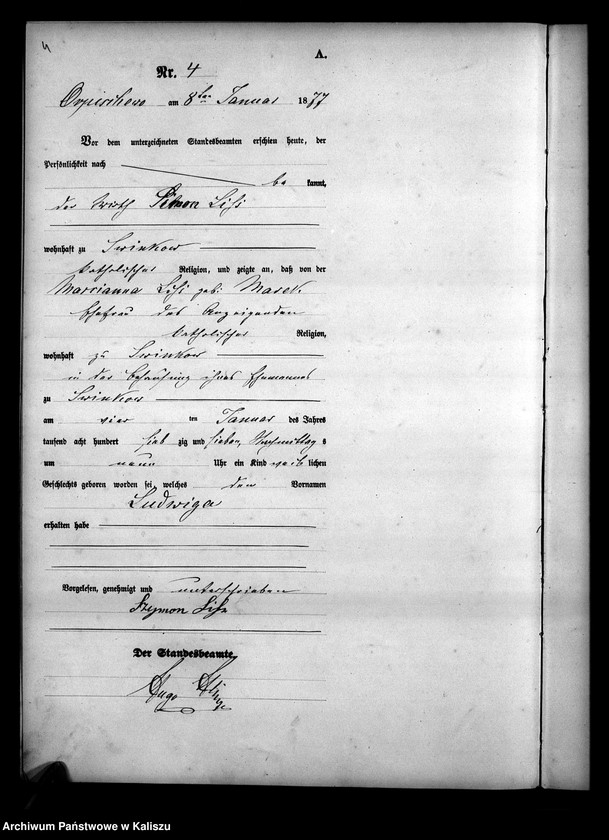 4
A.
Nr. 4
Orpischewo am 8ten Januar 1877
Vor dem unterzeichneten Standesbeamten erschien heute, der
Persönlichkeit nach
be kannt,
der Wirth Simon Lisi
wohnhaft zu Swinkow
katholischer Religion, und zeigte an, daß von der
Marcianna Lisi geb: Masek
Ehefrau des Anzeigenden
katholischer Religion,
wohnhaft zu Swinkow
in der Behausung ihres Ehemannes
zu Swinkow
am vier ten Januar des Jahres
tausend acht hundert sieb zig und sieben, Nachmittag s
um neun Uhr ein Kind weib lichen
Geschlechts geboren worden sei, welches den Vornamen
Ludwiga
erhalten habe
Vorgelesen, genehmigt und unterschrieben
Szymon
Der Standesbeamte.
Hugo
Archiwum Państwowe w Kaliszu